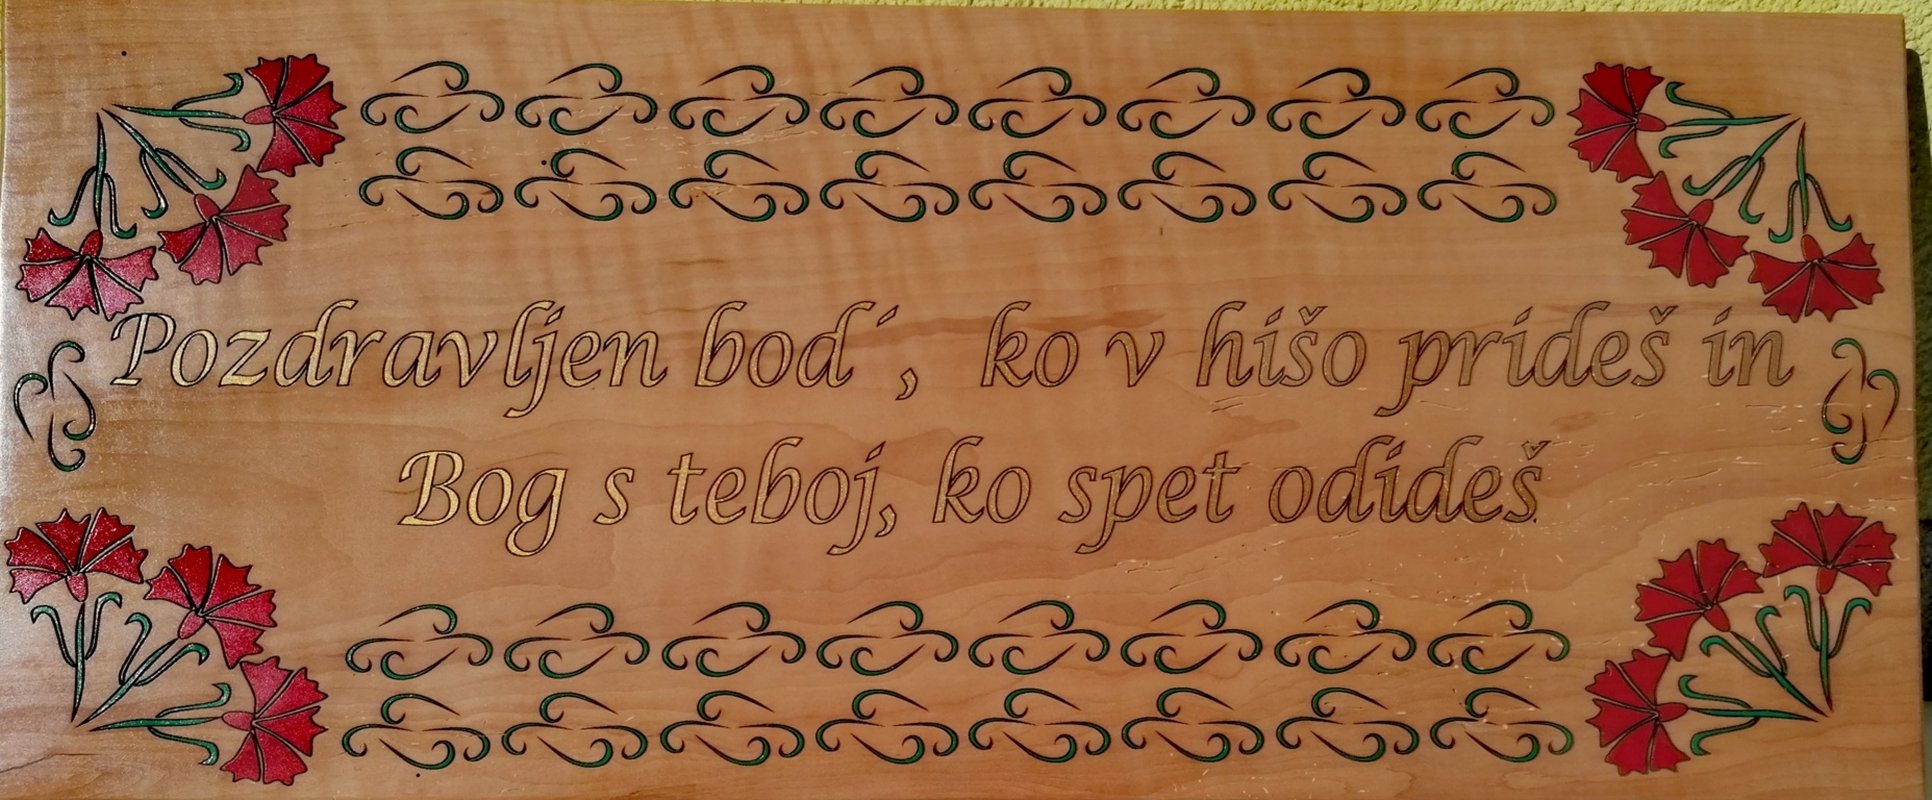 Pozdravljen bodi, ko v hišo prideš in
Bog s teboj, ko spet odideš